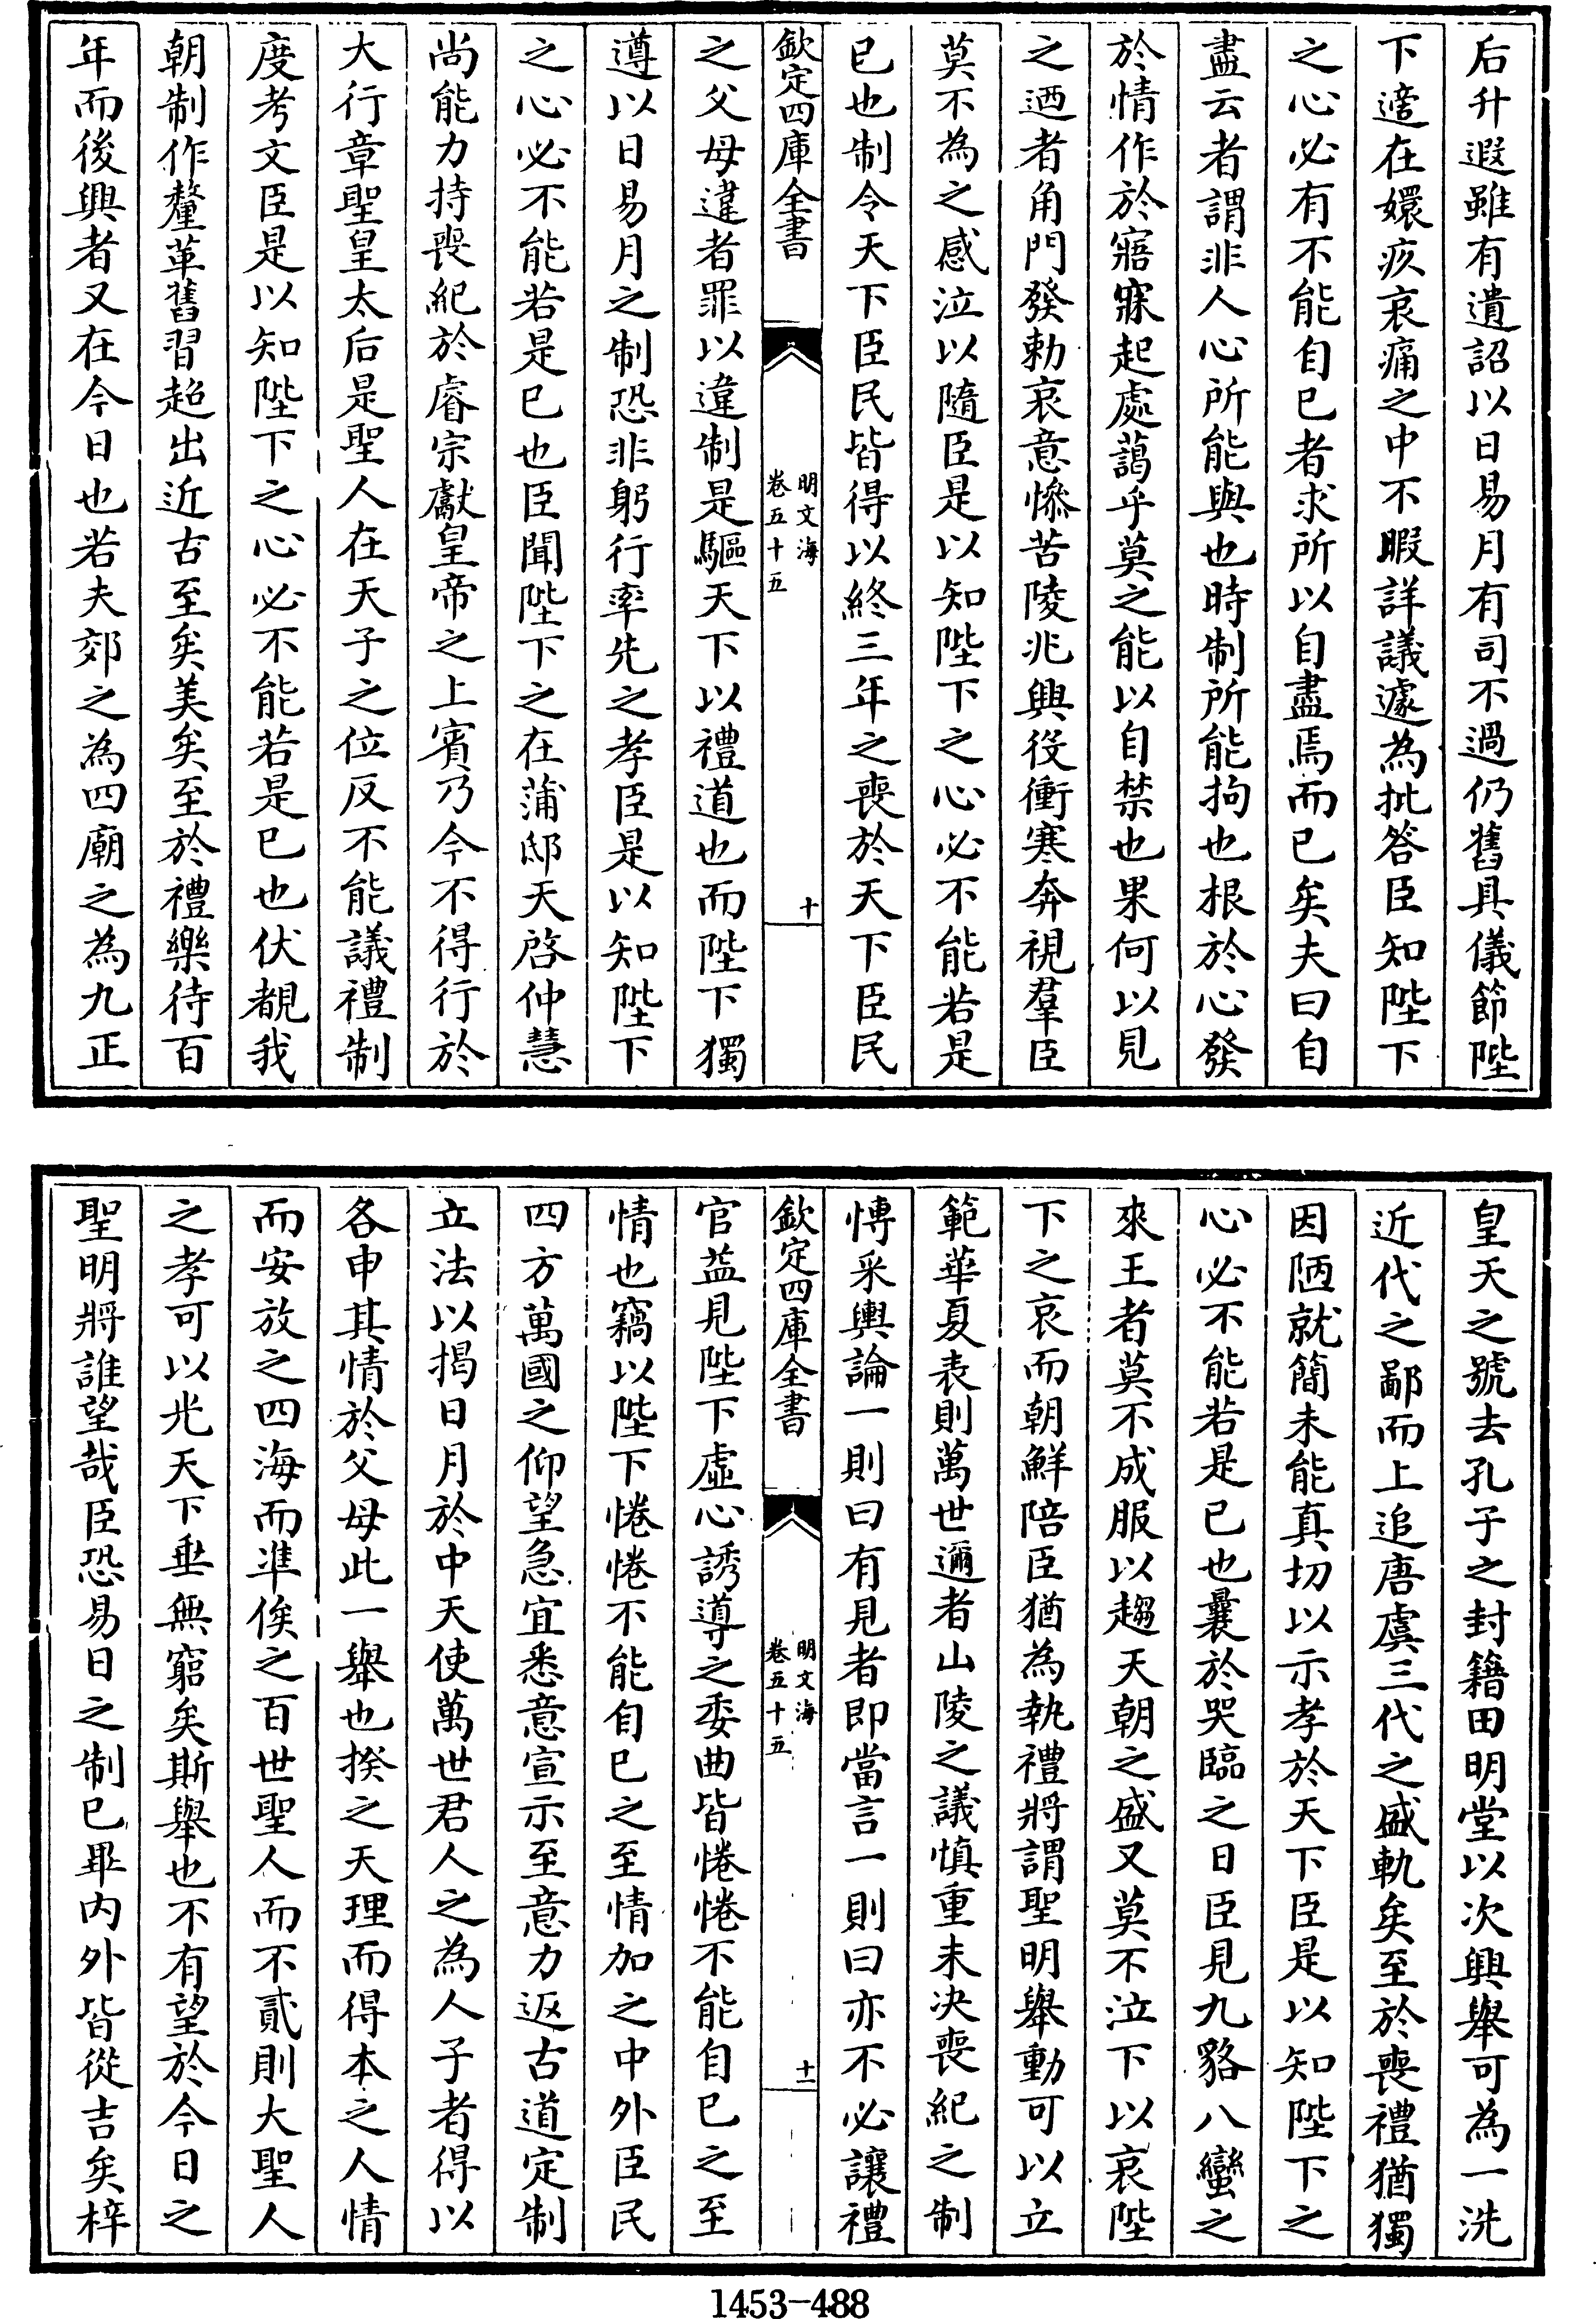 后升遐雖有遺詔以日易月有司不過仍舊具儀節陛
下適在嬛疚哀痛之中不暇詳議遽為批答臣知陛下
之心必有不能自已者求所以自盡焉而已矣夫曰自
盡云者謂非人心所能與也時制所能拘也根於心發
於情作於寤寐起處藹乎莫之能以自禁也果何以見
之迺者角門發勅哀意慘苦陵兆興役衝寒奔視羣臣
莫不為之感泣以隨臣是以知陛下之心必不能若是
已也制令天下臣民皆得以終三年之喪於天下臣民
欽定四庫全書
明文海
卷五十五
十
之父母違者罪以違制是驅天下以禮道也而陛下獨
遵以日易月之制恐非躬行率先之孝臣是以知陛下
之心必不能若是已也臣聞陛下之在藩邸天啓仲慧
尚能力持喪紀於睿宗獻皇帝之上賓乃今不得行於
大行章聖皇太后是聖人在天子之位反不能議禮制
度考文臣是以知陛下之心必不能若是已也伏覩我
朝制作釐革舊習超出近古至矣美矣至於禮樂待百
年而後興者又在今日也若夫郊之為四廟之為九正
皇天之號去孔子之封籍田明堂以次興舉可為一洗
近代之鄙而上追唐虞三代之盛軌矣至於喪禮猶獨
因陋就簡未能真切以示孝於天下臣是以知陛下之
心必不能若是已也曩於哭臨之日臣見九貉八蠻之
來王者莫不成服以趨天朝之盛又莫不泣下以哀陛
下之哀而朝鮮陪臣猶為執禮將謂聖明舉動可以立
範華夏表則萬世邇者山陵之議慎重未決喪紀之制
愽采輿論一則曰有見者即當言一則曰亦不必讓禮
欽定四庫全書
明文海
卷五十五
十一
官益見陛下虛心誘導之委曲皆惓惓不能自已之至
情也竊以陛下惓惓不能自已之至情加之中外臣民
四方萬國之仰望急宜悉意宣示至意力返古道定制
立法以揭日月於中天使萬世君人之為人子者得以
各申其情於父母此一舉也揆之天理而得本之人情
而安放之四海而準俟之百世聖人而不貳則大聖人
之孝可以光天下垂無窮矣斯舉也不有望於今日之
聖明將誰望哉臣恐易日之制已畢内外皆從吉矣梓
1453-488